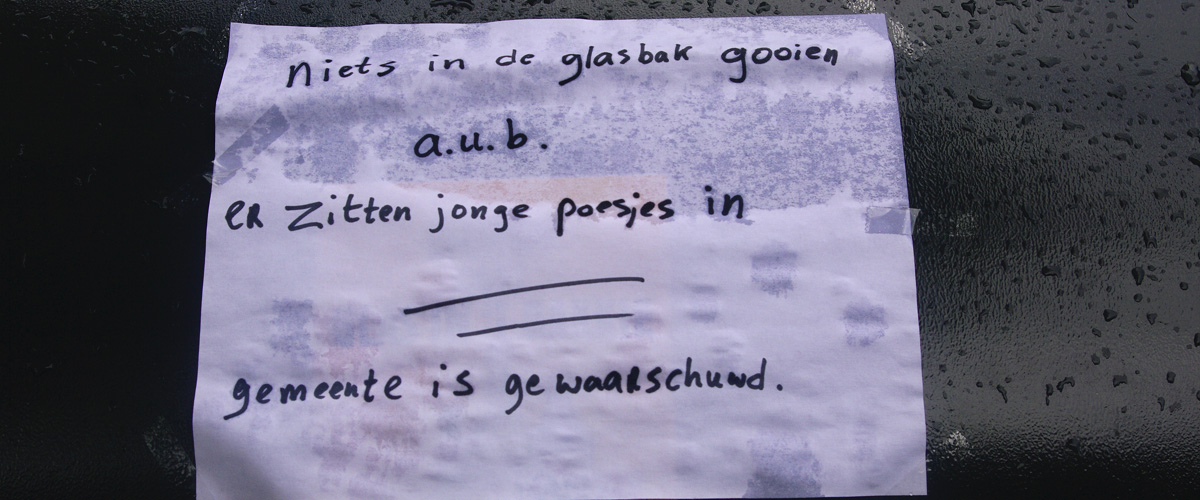 niets in de glasbak gooien
a.u.b.
er zitten jonge poesjes in
gemeente is gewaarschuwd.